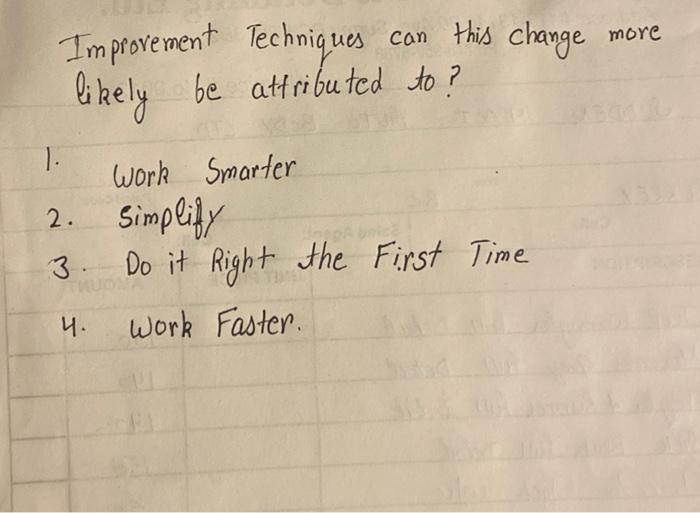 Improvement Techniques can this change more
likely be attributed to?
1. Work Smarter
2. Simplify
3. Do it Right the First Time
4. Work Faster.